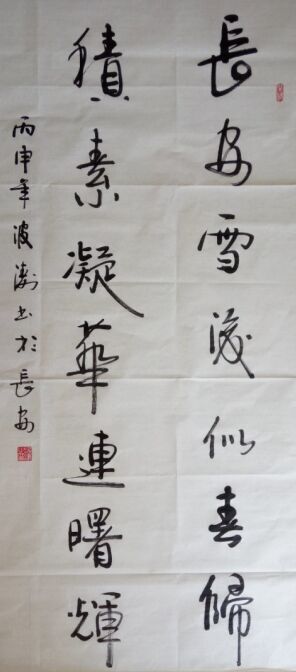 長安雪後似春歸
積素凝華連曙輝
丙申年波濤書於長安